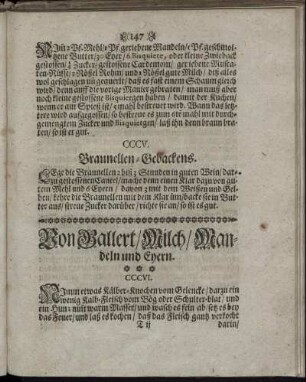 147
Nim 2 Pf. Mehl/ 1 Pf. geriebene Mandeln/ 1 Pf. geschmoltzene
Butter/ 30 Eyer/ 6 Bisquiere, oder kleine Zwieback
gestossen/ Zucker/ gestossene Cardemom/ geriebene Muscaten-Nüsse/
2 Nössel Rohm/ und 2 Nössel gute Milch/ diß alles
wol geschlagen und gequerlt/ daß es fast einem Schaum gleich
wird/ denn auff die vorige Manier gebraten/ man muß aber
noch kleine gestossene Bisquiergen haben/ damit der Kuchen/
wenn er am Spieß ist/ 5 mahl bestreuet wird. Wann das letztere
wird auffgegossen/ so bestreue es zum 6te mahl mit durchgemengtem
Zucker und Bisquiergen/ laß ihn denn braun braten/
so ist er gut.
CCCV.
Braunellen-Gebackens.
LEge die Braunellen 2 biß 3 Stunden in guten Wein/ darzu
gestossenen Canel/ mache denn einen Klar dazu von gutem
Mehl und 6 Eyern/ davon 2 mit dem Weissen und Gelben/
kehre die Braunellen mit dem Klar um/ backe sie in Butter
aus/ streue Zucker darüber/ richte sie an/ so ist es gut.
Von Gallert/ Milch/ Mandeln
und Eyern.
CCCVI.
NImm etwas Kälber-Knochen vom Gelencke/ darzu ein
wenig Kalb-Fleisch vom Bög oder Schulter-blat/ und
ein Hun/ nim warm Wasser/ und wasch es fein ab/ setz es bey
das Feuer/ und laß es kochen/ daß das Fleisch gantz verkocht
T ij
darin/